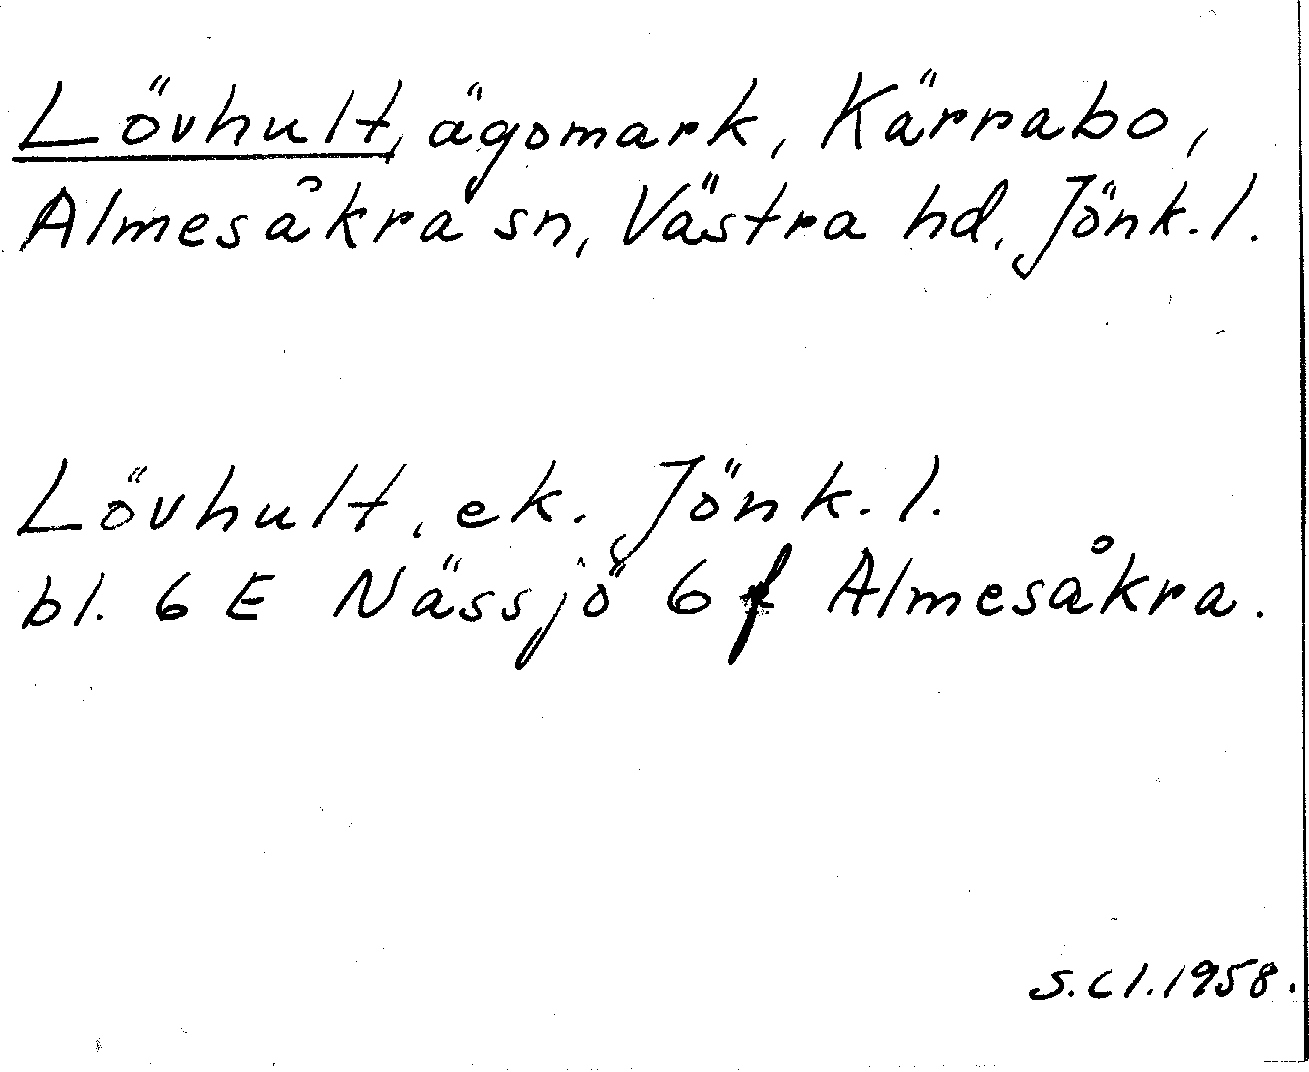 Lövhult, ägomark, Kärrabo,
Almesåkra sn, Västra hd, Jönk.l.
Lövhult, ek. Jönk.l.
bl. 6 E Nässjö 6 f Almesåkra.
S.Cl.1958.